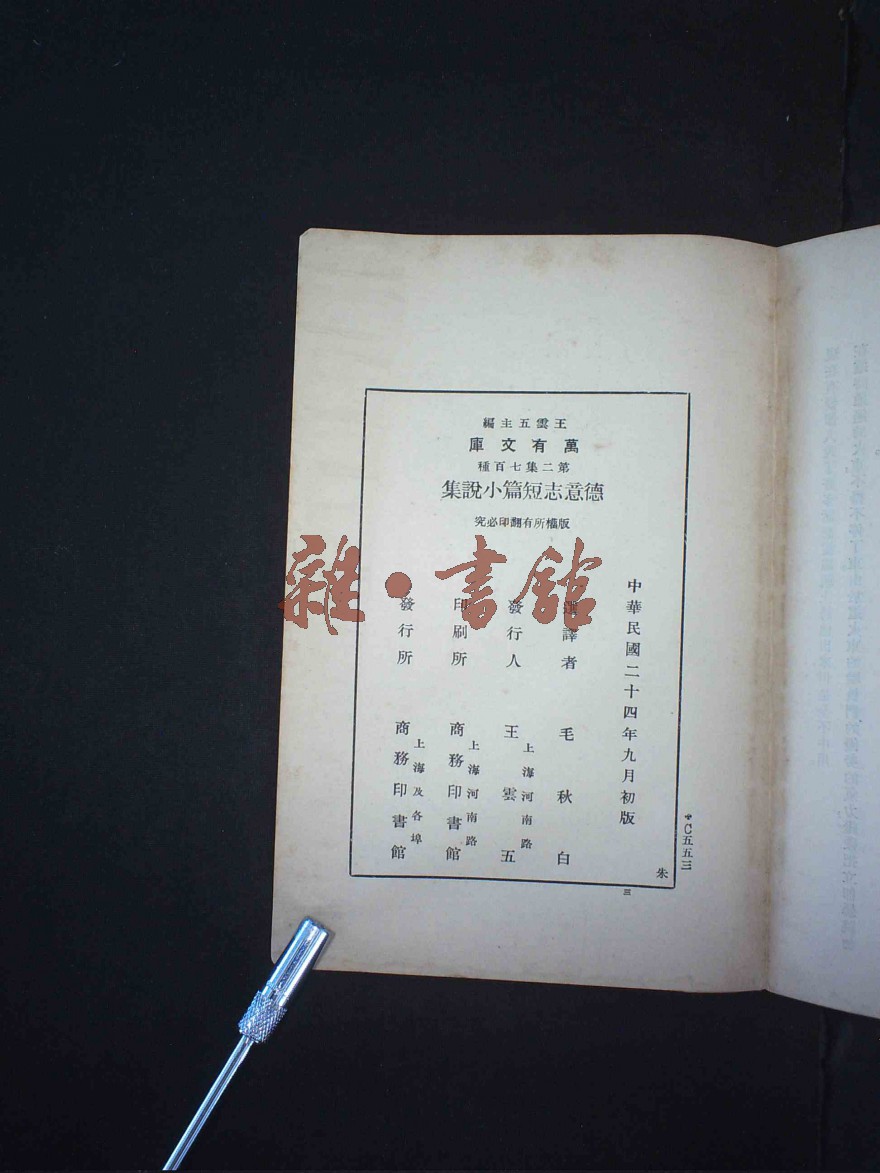 王雲五主編
萬有文庫
第二集七百種
德意志短篇小說集
版權所有翻印必究
中華民國二十四年九月初版
選譯者 毛秋白
發行人 王雲五
上海河南路
印刷所 商務印書館
上海河南路
發行所 商務印書館
上海及各埠
*C五五三
朱
三
雜·書館